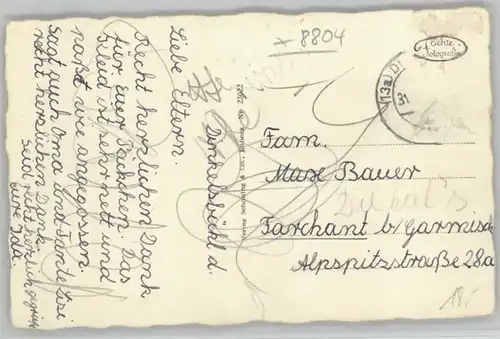 x 8804
Echte
Fotografie
(13a) D
31
Dinkelsbühl d.
Liebe Eltern.
Recht herzlichen Dank
für euer Päckchen. Das
Kleid ist sehr nett und
paßt wie angegossen.
Sagt auch Oma und Tante Lisi
recht herzlichen Dank.
Seid recht herzlich gegrüßt
eure Jda.
Fam.
Max Bauer
Farchant b/Garmisch
Alpspitzstraße 28a
18,-